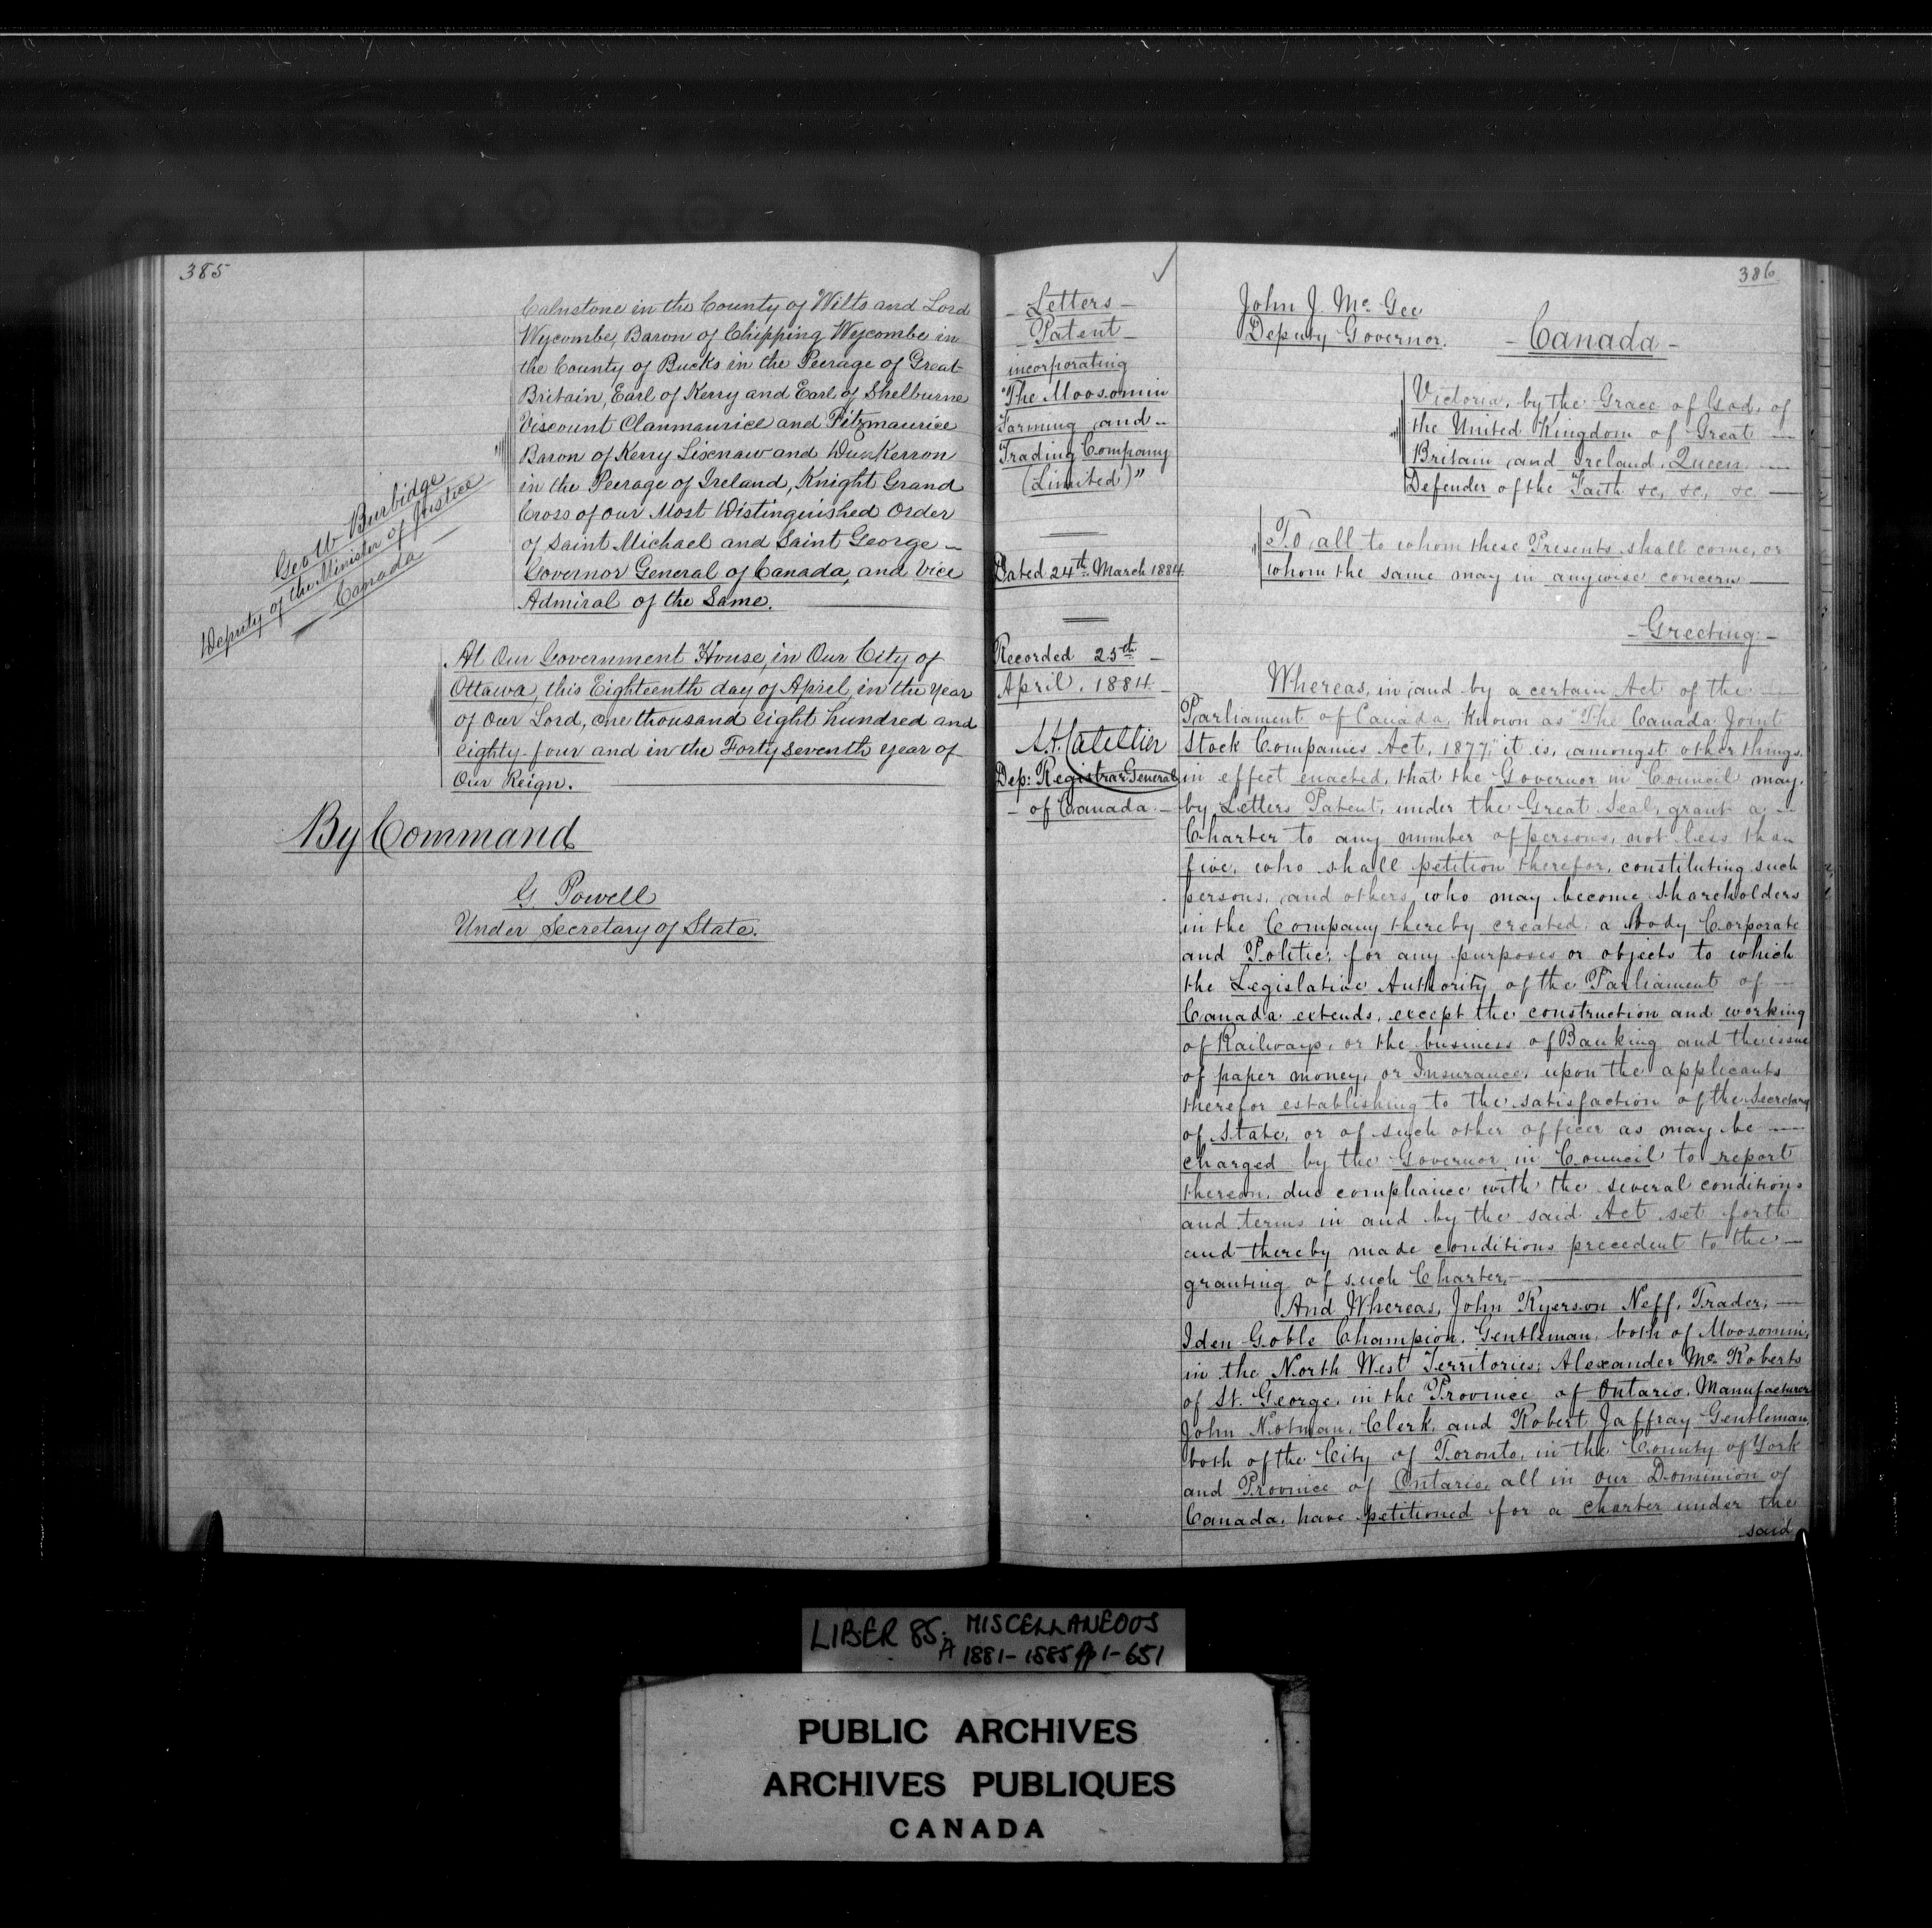 385
Calnstone in the County of Wilts and Lord
Wycombe, Baron of Chipping Wycombe in
the County of Bucks in the Peerage of Great
Britain, Earl of Kerry and Earl of Shelburne
Viscount Clanmaurice and Fitzmaurice
Baron of Kerry Lixnaw and Dunkerron
in the Peerage of Ireland, Knight Grand
Cross of Our Most Distinguished Order
of Saint Michael and Saint George —
Governor General of Canada, and Vice
Admiral of the Same.
Geo W Burbidge
Deputy of the Minister of Justice
Canada
At Our Government House, in Our City of
Ottawa, this Eighteenth day of April, in the year
of Our Lord, one thousand eight hundred and
eighty-four and in the Forty seventh year of
Our Reign.
By Command
G. Powell
Under Secretary of State.
386
Letters —
Patent —
incorporating
"The Moosomin
Farming and —
Trading Company
(Limited)"
Dated 24th March 1884
Recorded 25th —
April, 1884 —
A. H. Catellier
Dep: Registrar General
— of Canada —
John J. Mc Gee
Deputy Governor.
— Canada —
Victoria, by the Grace of God, of
the United Kingdom of Great —
Britain and Ireland, Queen —
Defender of the Faith &c, &c, &c —
To all to whom these Presents shall come, or
whom the same may in anywise concern —
— Greeting —
Whereas, in and by a certain Act of the —
Parliament of Canada, known as "The Canada Joint
Stock Companies Act, 1877," it is, amongst other things,
in effect enacted, that the Governor in Council may,
by Letters Patent, under the Great Seal, grant a —
Charter to any number of persons, not less than
five, who shall petition therefor, constituting such
persons, and others who may become shareholders
in the Company thereby created, a Body Corporate
and Politic, for any purposes or objects to which
the Legislative Authority of the Parliament of —
Canada extends, except the construction and working
of Railways, or the business of Banking and the issue
of paper money, or Insurance, upon the applicants
therefor establishing to the satisfaction of the Secretary
of State, or of such other officer as may be —
charged by the Governor in Council to report
thereon, due compliance with the several conditions
and terms in and by the said Act set forth
and thereby made conditions precedent to the —
granting of such Charter, —
And Whereas, John Ryerson Neff, Trader, —
Iden Goble Champion, Gentleman, both of Moosomin,
in the North West Territories; Alexander Mc Roberts
of St. George, in the Province of Ontario, Manufacturer
John Notman, Clerk, and Robert Jaffray Gentleman,
both of the City of Toronto, in the County of York
and Province of Ontario, all in our Dominion of
Canada, have petitioned for a charter under the
said
LIBER 85. A MISCELLANEOUS
1881-1885 pp 1-651
PUBLIC ARCHIVES
ARCHIVES PUBLIQUES
CANADA